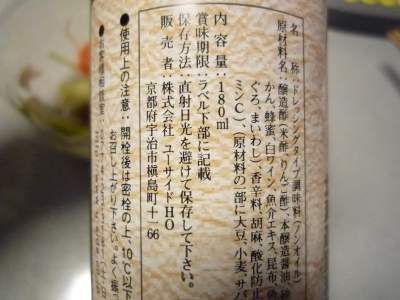 名　称：ドレッシングタイプ調味料（ノンオイル）
原材料名：醸造酢（米酢、りんご酢）、本醸造醤油、
かん、蜂蜜、白ワイン、魚介エキス、昆布、
ぐろ、まいわし）、香辛料、胡麻、酸化防
ミンC）、（原材料の一部に大豆、小麦、サバ
内 容 量：180ml
賞味期限：ラベル下部に記載
保存方法：直射日光を避けて保存して下さい。
販 売 者：株式会社 ユーサイドHO
京都府宇治市槇島町十一66
●使用上の注意：開栓後は密栓の上、10℃以下
お召し上がり下さい。よく振っ
●お客様相談室